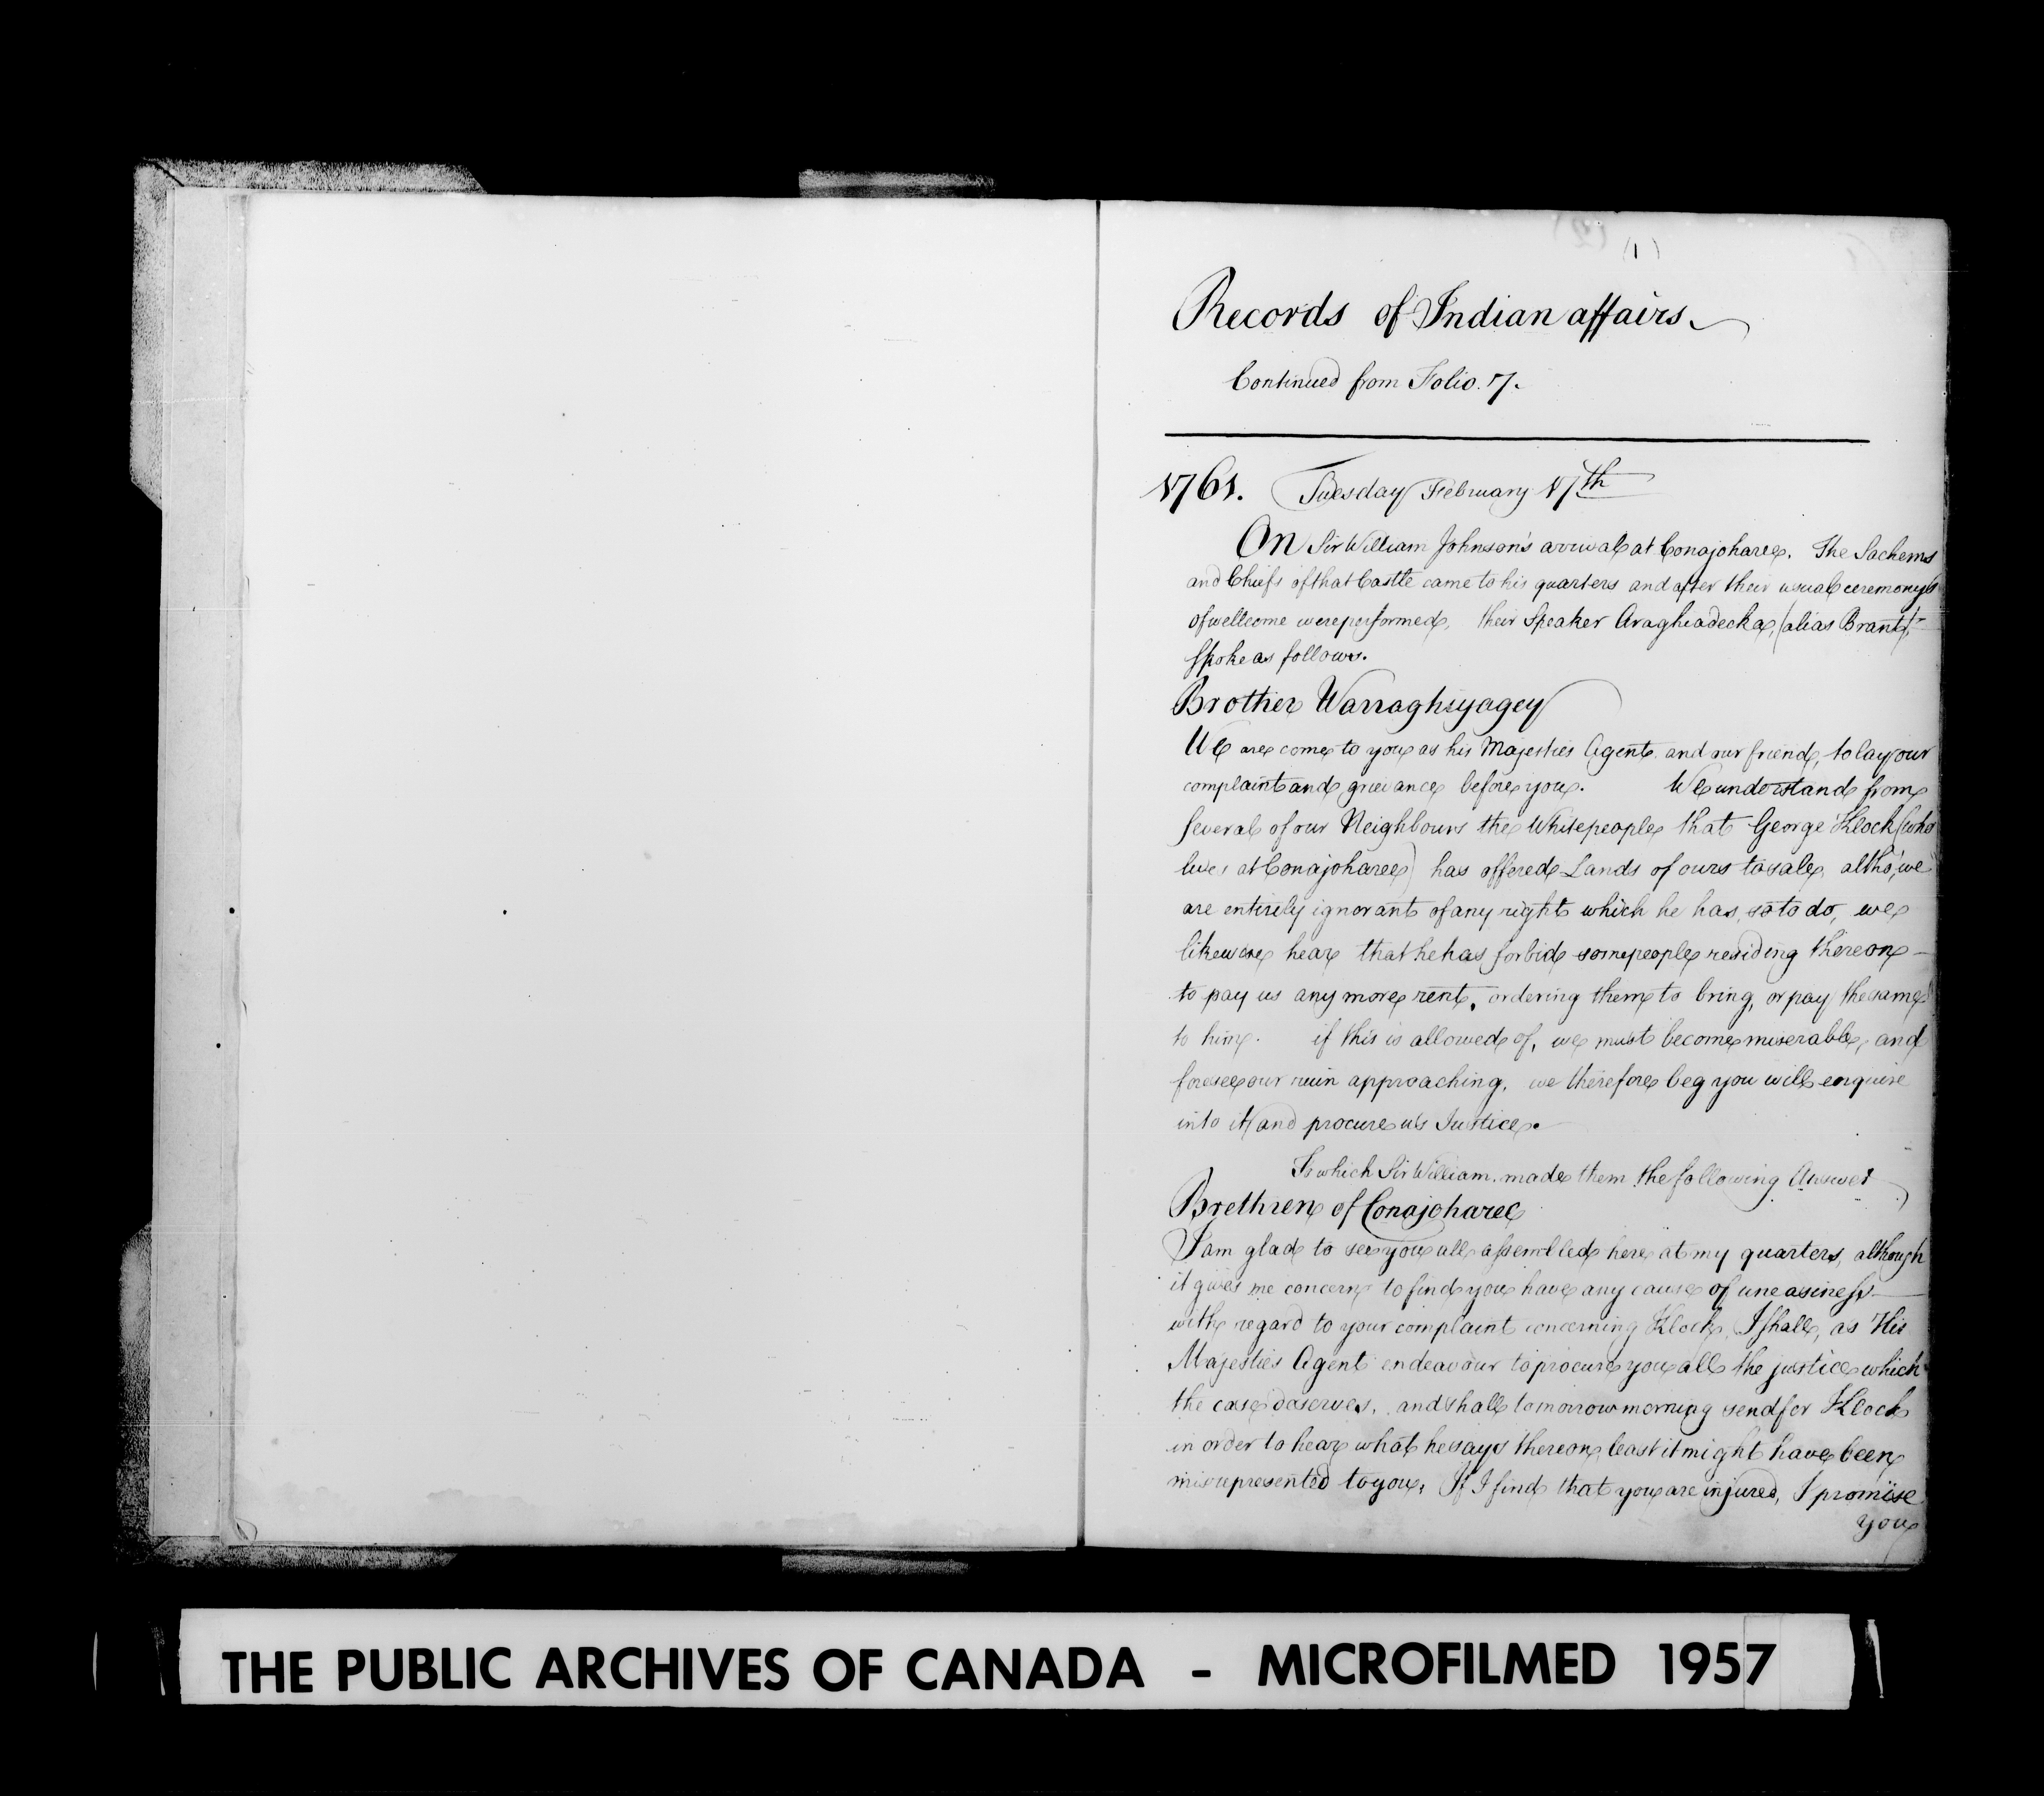 (1)
Records of Indian affairs
Continued from Folio. 7.
1761. Tuesday February 17th
On Sir William Johnson's arrival at Conajoharee. The Sachems
and Chiefs of that Castle came to his quarters and after their usual ceremonys
of wellcome were performed, their Speaker Araghiadecka, (alias Brant)
spoke as follows.
Brother Warraghiyagey
We are come to you as his Majesties Agent and our friend, to lay our
complaint and grievance before you. We understand from
several of our Neighbours the Whitepeople that George Klock (who
lives at Conajoharee) has offered Lands of ours to sale, altho' we
are entirely ignorant of any right which he has so to do, we
likewise hear that he has forbid some people residing thereon
to pay us any more rent, ordering them to bring, or pay the same
to him. if this is allowed of, we must become miserable, and
foresee our ruin approaching, we therefore beg you will enquire
into it, and procure us Justice.
To which Sir William made them the following Answer
Brethren of Conajoharee
I am glad to see you all assembled here at my quarters, although
it gives me concern to find you have any cause of uneasiness
with regard to your complaint concerning Klock, I shall, as His
Majesties Agent endeavour to procure you all the justice which
the case deserves, and shall tomorrow morning send for Klock
in order to hear what he says thereon, least it might have been
misrepresented to you, If I find that you are injured, I promise
you
THE PUBLIC ARCHIVES OF CANADA - MICROFILMED 1957